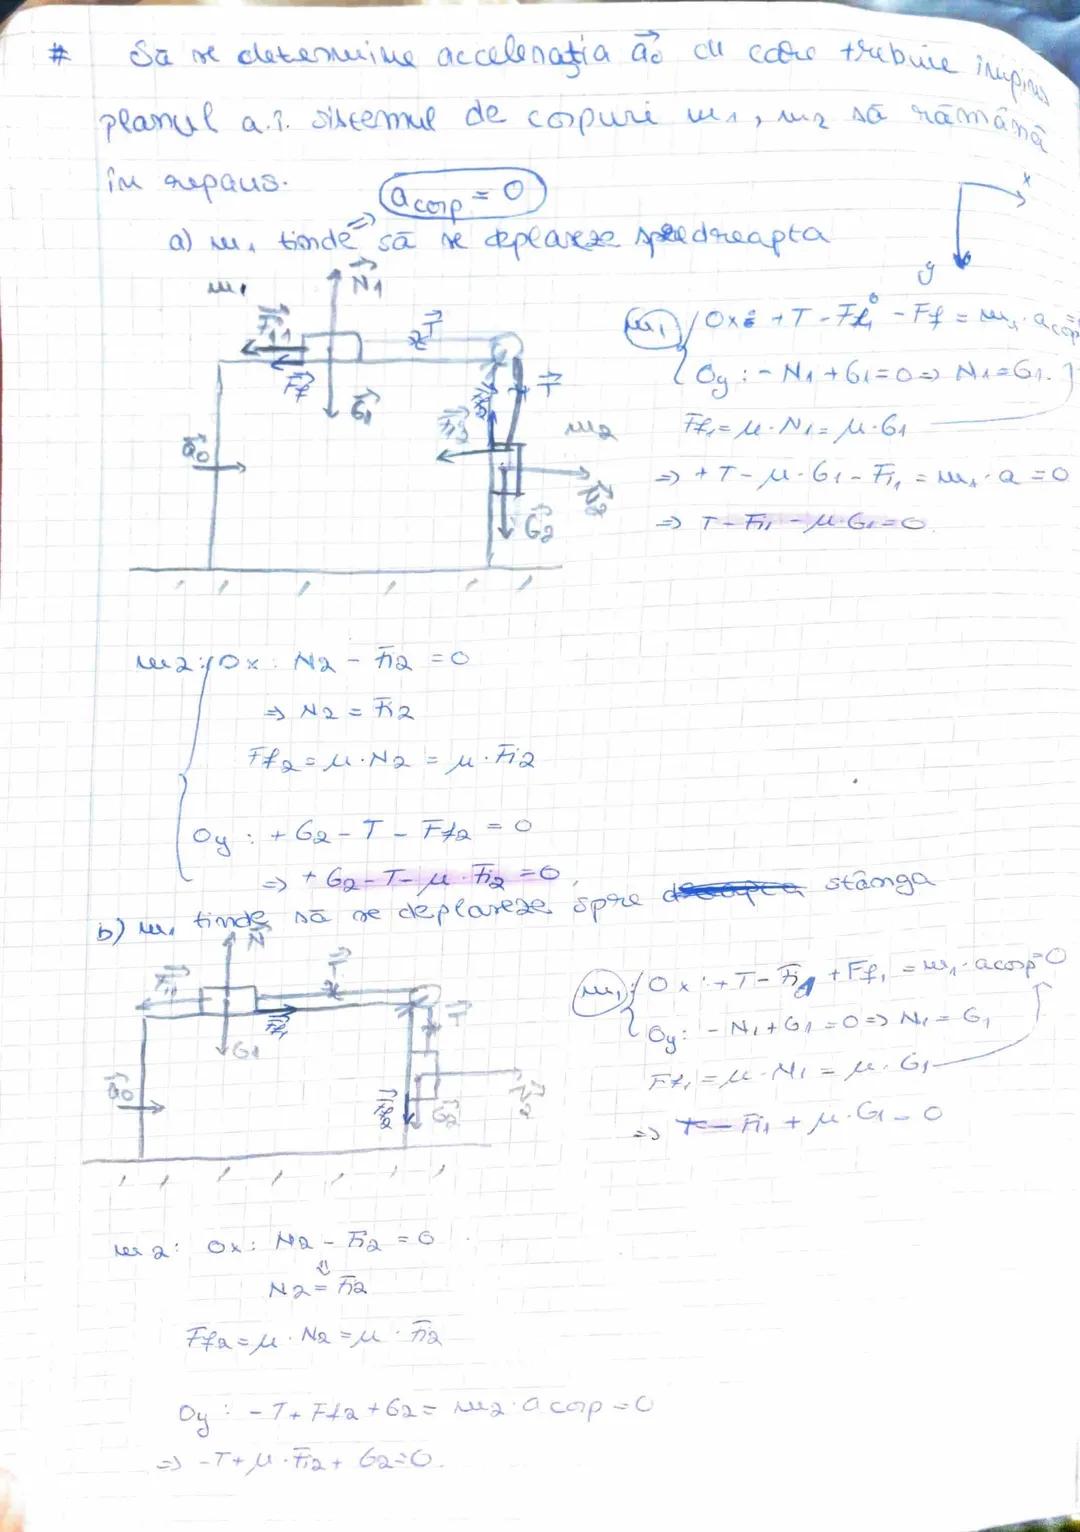 # Să se determine accelerația a₀ cu care trebuie împins
planul a.î. sistemul de corpuri m₁, m₂ să rămână
în repaus.
a corp = 0
a) m₁ tinde să se deplaseze spre dreapta
x
y
m₁
N₁
Fi₁
T
Ff
G₁
T
Fi₂
m₂
a₀
N₂
G₂
m₁ Ox: +T - Fi₁ - Ff = m₁·a corp
Oy: -N₁ + G₁ = 0 => N₁ = G₁.
Ff₁ = μ·N₁ = μ·G₁
=> +T - μ·G₁ - Fi₁ = m₁·a = 0
=> T - Fi₁ - μ·G₁ = 0.
m₂: Ox: N₂ - Fi₂ = 0
=> N₂ = Fi₂
Ff₂ = μ·N₂ = μ·Fi₂
Oy: +G₂ - T - Ff₂ = 0
=> +G₂ - T - μ·Fi₂ = 0
b) m₁ tinde să se deplaseze spre stânga
N
Fi₁
T
Ff₁
T
G₁
a₀
Ff₂
G₂
N₂
m₁: Ox: +T - Fi₁ + Ff₁ = m₁·a corp = 0
Oy: -N₁ + G₁ = 0 => N₁ = G₁
Ff₁ = μ·N₁ = μ·G₁
=> T - Fi₁ + μ·G₁ = 0
m₂: Ox: N₂ - Fi₂ = 0
N₂ = Fi₂
Ff₂ = μ·N₂ = μ·Fi₂
Oy: -T + Ff₂ + G₂ = m₂·a corp = 0
=> -T + μ·Fi₂ + G₂ = 0.